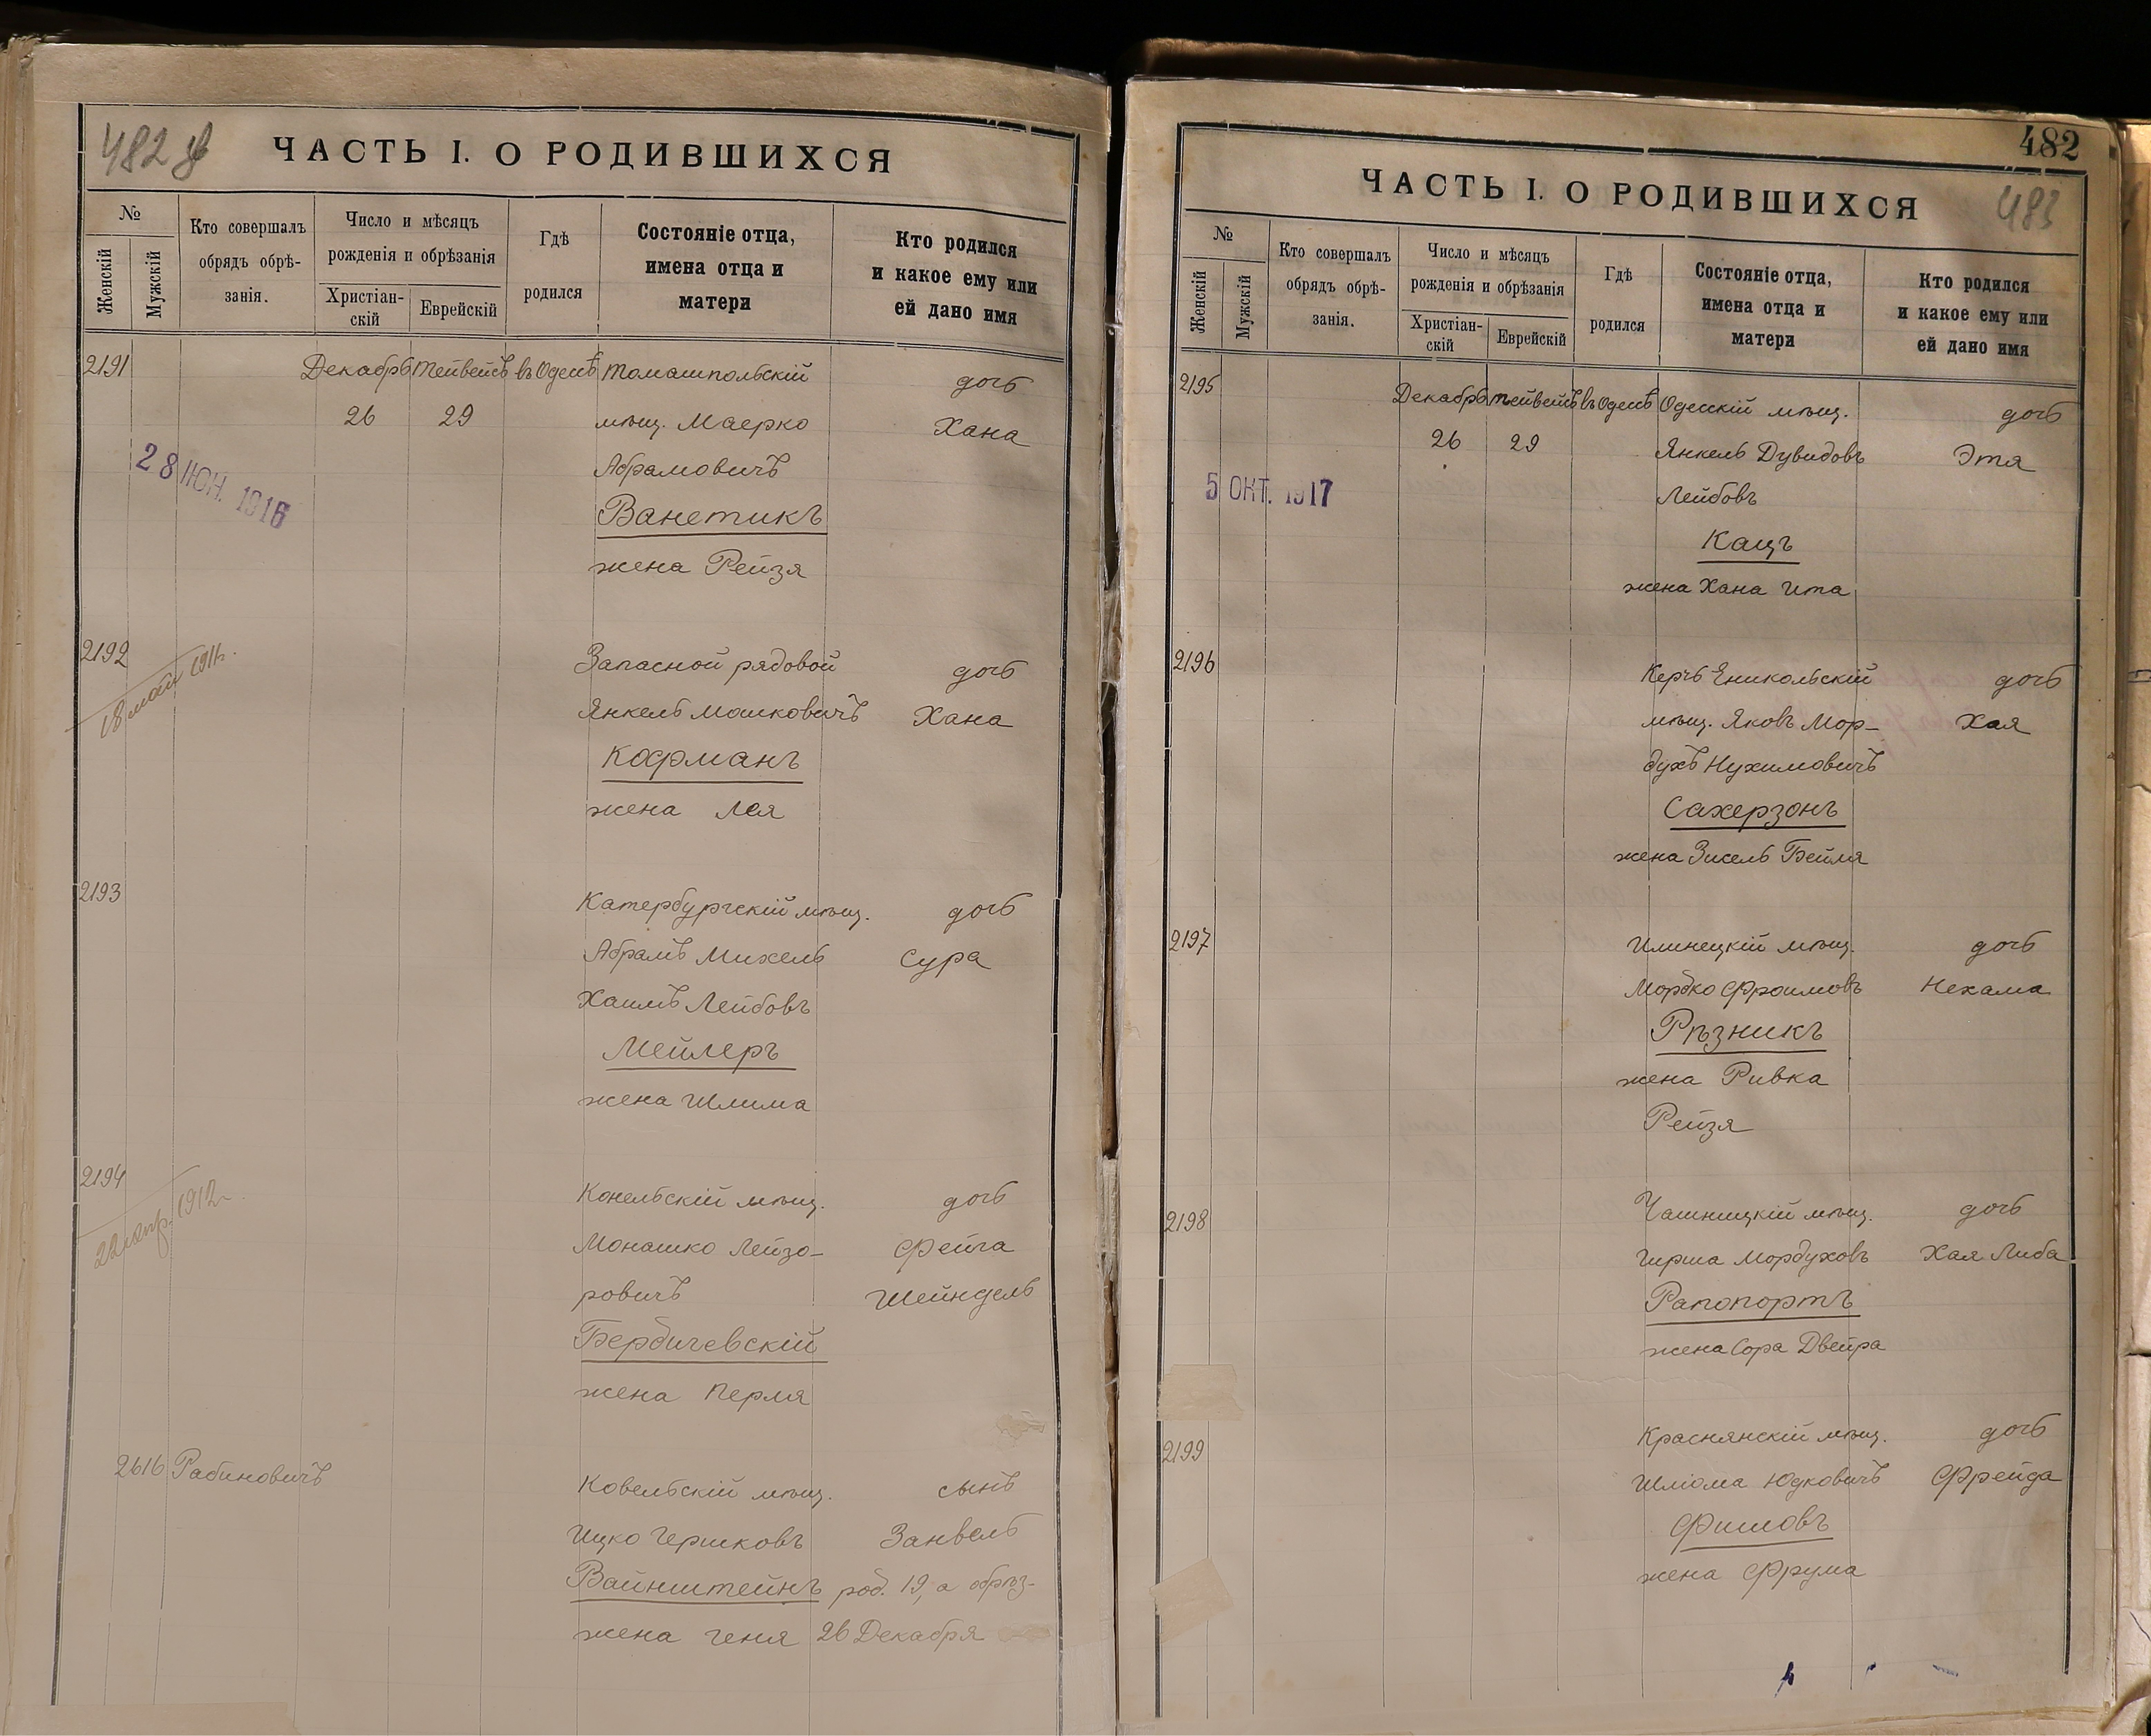 482 об
ЧАСТЬ I. О РОДИВШИХСЯ
№
Женскій
Мужскій
Кто совершалъ
обрядъ обрѣ-
занія.
Число и мѣсяцъ
рожденія и обрѣзанія
Христіан-
скій
Еврейскій
Гдѣ
родился
Состояніе отца,
имена отца и
матери
Кто родился
и какое ему или
ей дано имя
2191 Декабрь тейвейсъ въ Одессѣ Томашпольскій дочь
26 29 мѣщ. Маерко Хана
28 ІЮН. 1916
Абрамовичъ
Ванетикъ
жена Рейзя
2192 Запасной рядовой дочь
18 мая 1911г.
Янкель Мошковичъ Хана
Кофманъ
жена Лея
2193 Катербургскій мѣщ. дочь
Абрамъ Михель Сура
Хаимъ Лейбовъ
Мейлеръ
жена Шлима
2194 Конельскій мѣщ. дочь
22 апр. 1912г.
Монашко Лейзо- Фейга
ровичъ Шейндель
Бердичевскій
жена Перля
2616 Рабиновичъ Ковельскій мѣщ. сынъ
Ицко Гершковъ Занвель
Вайнштейнъ род. 19, а обрѣз-
жена Геня 26 Декабря
482
ЧАСТЬ I. О РОДИВШИХСЯ
483
№
Женскій
Мужскій
Кто совершалъ
обрядъ обрѣ-
занія.
Число и мѣсяцъ
рожденія и обрѣзанія
Христіан-
скій
Еврейскій
Гдѣ
родился
Состояніе отца,
имена отца и
матери
Кто родился
и какое ему или
ей дано имя
2195 Декабрь тейвейсъ въ Одессѣ Одесскій мѣщ. дочь
26 29 Янкель Дувидовъ Этя
5 ОКТ. 1917
Лейбовъ
Кацъ
жена Хана Ита
2196 Керчь Еникольскій дочь
мѣщ. Яковъ Мор- Хая
духъ Нухимовичъ
Сахерзонъ
жена Зисель Бейля
2197 Илинецкій мѣщ. дочь
Мордко Фроимовъ Нехама
Рѣзникъ
жена Ривка
Рейзя
2198 Чашницкій мѣщ. дочь
Гирша Мордуховъ Хая Либа
Рапопортъ
жена Сора Двейра
2199 Краснянскій мѣщ. дочь
Шліома Юдковичъ Фрейда
Фишовъ
жена Фрума